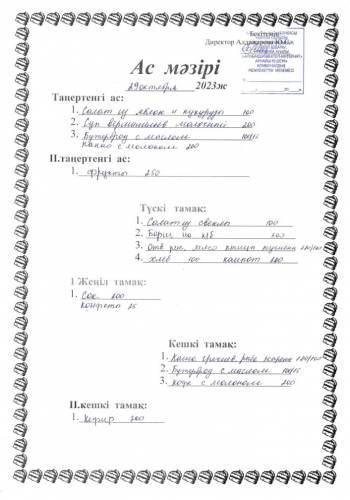 Бекітемін
Директор
Ас мәзірі
29 октября 2023ж
Таңертенгі ас:
1. Салат из яблок и кукурузы 100
2. Суп вермишелев молочный 200
3. Бутерброд с маслом 10/15
какао с молоком 200
II.таңертенгі ас:
1. Фрукты 250
Түскі тамақ:
1. Салат из свеклы 100
2. Борщ на к/б 200
3. Отв рис, мясо птицы
4. хлеб 100 компот 200
1 Жеңіл тамақ:
1. Сок 200
конфета 25
Кешкі тамақ:
1. Каша гречнев, рыба
2. Бутерброд с маслом 10/15
3. кофе с молоком 200
II.кешкі тамақ:
1. Кефир 200